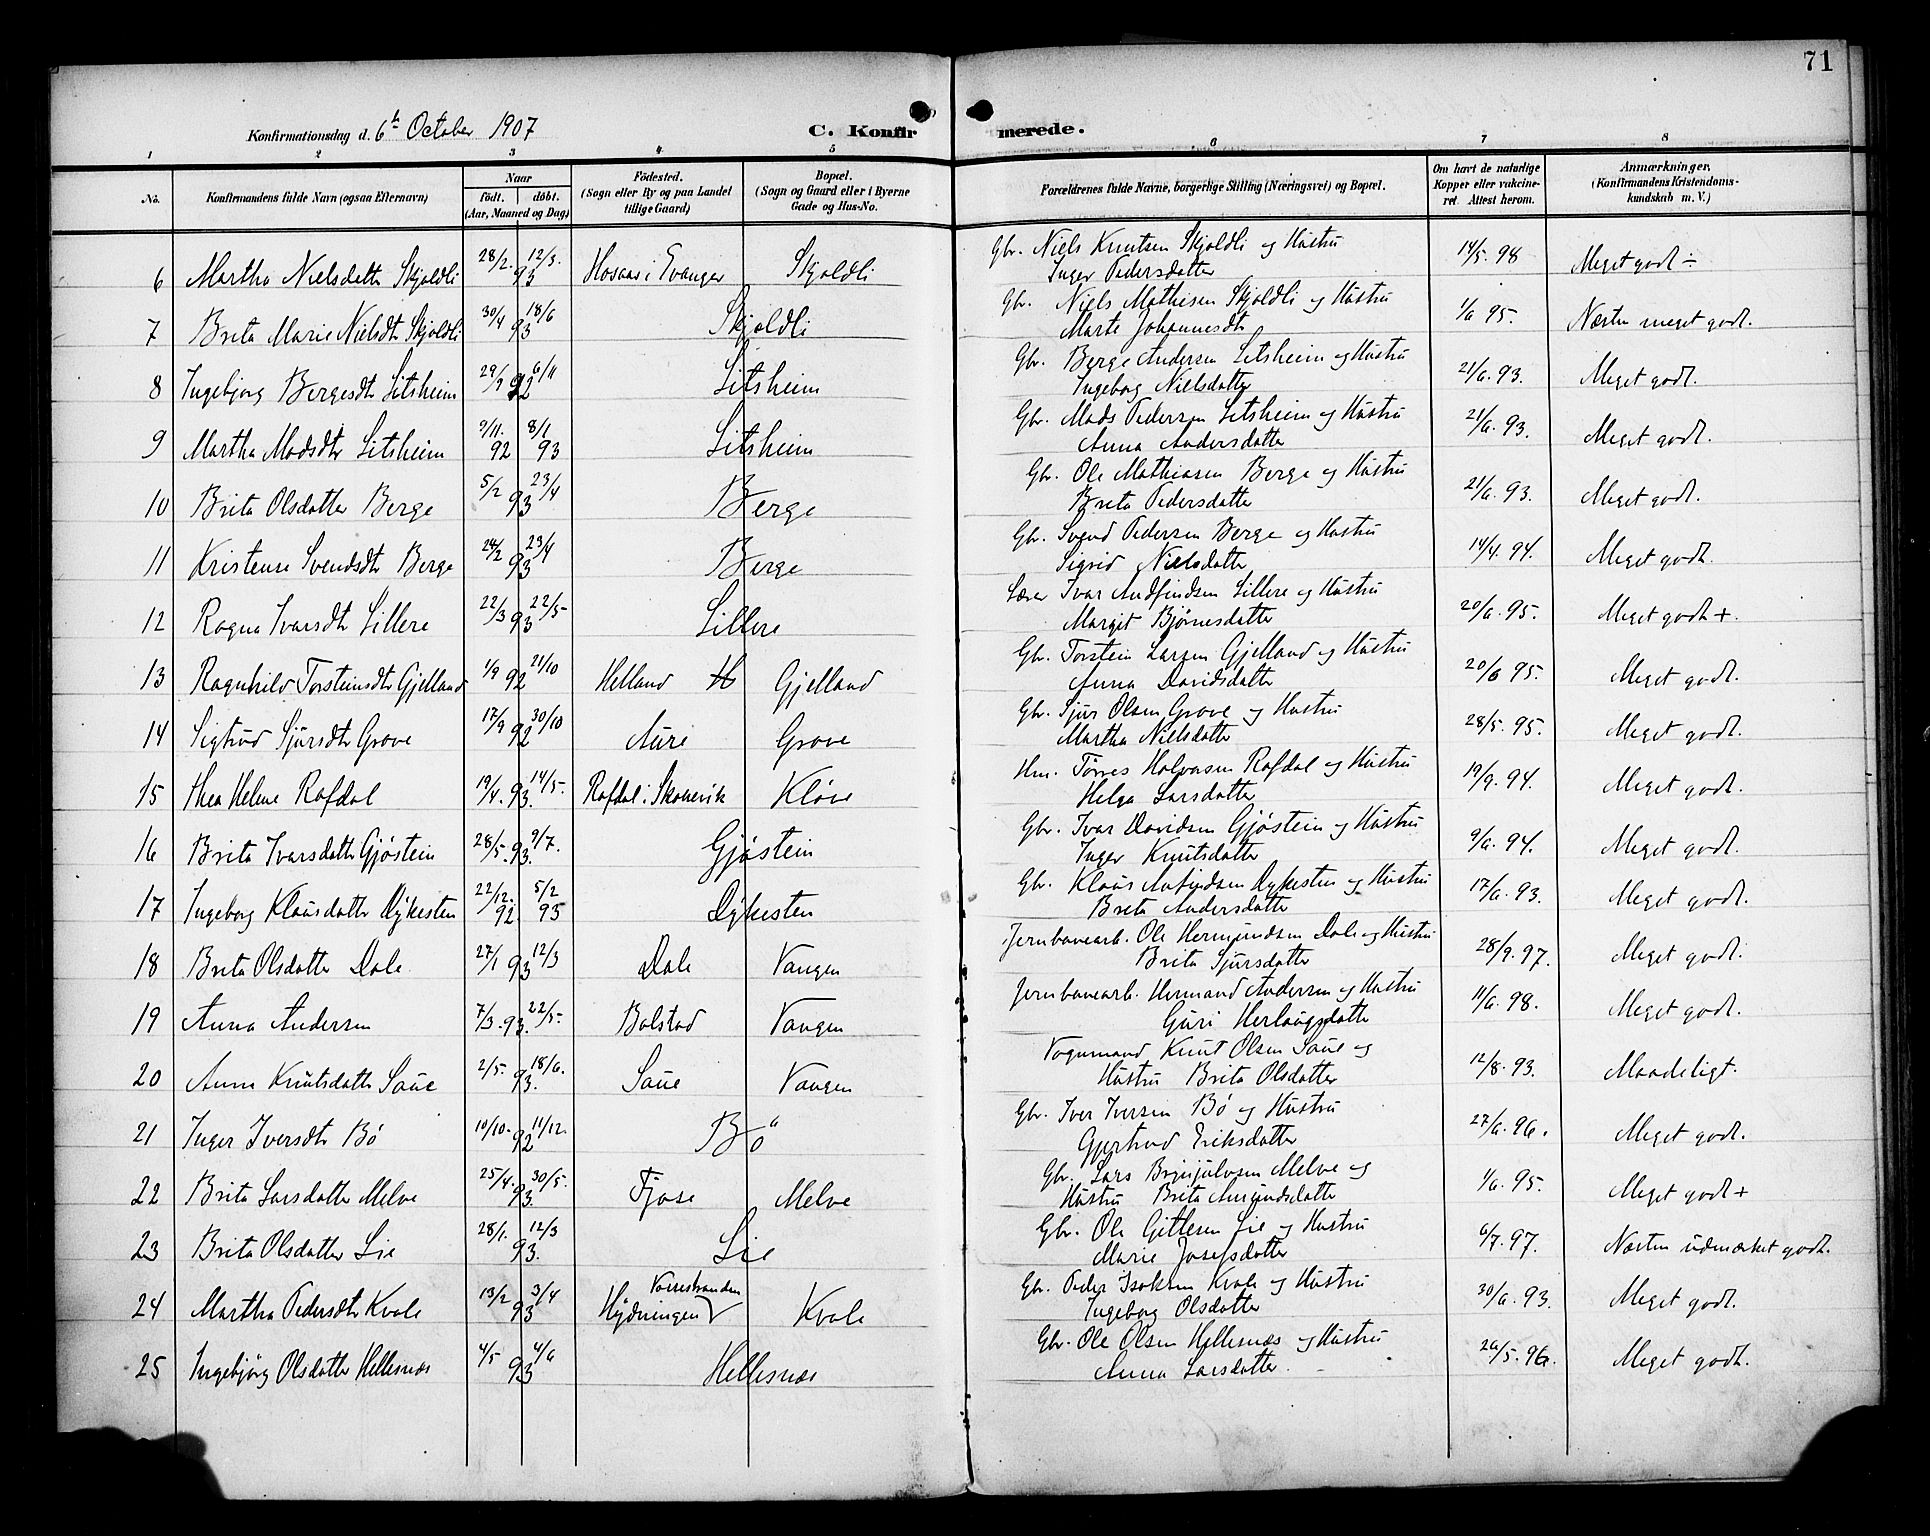 71
Konfirmationsdag d. 6te October 1907 C. Konfirmerede.
1 2 3 4 5 6 7 8
No. Konfirmandens fulde Navn (ogsaa Efternavn) Naar født. døbt. (Aar, Maaned og Dag) Fødested. (Sogn eller By og paa Landet tillige Gaard) Bopæl. (Sogn og Gaard eller i Byerne Gade og Hus-No. Forældrenes fulde Navne, borgerlige Stilling (Næringsvei) og Bopæl. Om havt de naturlige Kopper eller vakcineret. Attest herom. Anmærkninger. (Konfirmandens Kristendomskundskab m. V.)
6 Martha Nielsdatt Skjoldli 28/2. 12/3. 93 Hosaas i Evanger Skjoldli Gbr. Niels Knutsen Skjoldli og Hustru
Inger Pedersdatter 14/5. 98 Meget godt ÷
7 Brita Marie Nielsdt Skjoldli 30/4 18/6 93 Skjoldli Gbr. Niels Mathisen Skjoldli og Hustru
Marte Johannesdt 1/6 95. Næsten meget godt.
8 Ingebjørg Bergesdtr Sitsheim 29/9 6/11 92 Sitsheim Gbr. Berge Andersen Sitsheim og Hustru
Ingeborg Nielsdatter 21/6. 93. Meget godt.
9 Martha Madsdtr Sitsheim 9/11. 92 8/1 93 Sitsheim Gbr. Mads Pedersen Sitsheim og Hustru
Anna Andersdatter 21/6. 93. Meget godt.
10 Brita Olsdatter Berge 5/2 23/4 93 Berge Gbr. Ole Mathiasen Berge og Hustru
Brita Pedersdatter 21/6. 93. Meget godt.
11 Kristense Svendsdtr Berge 24/2 23/4 93 Berge Gbr. Svend Pedersen Berge og Hustru
Sigrid Nielsdatter 14/4. 94. Meget godt.
12 Ragna Ivarsdtr Lillere 22/3 22/5- 93 Lillere Lærer Ivar Andfindsen Lillere og Hustru
Margit Bjørnesdatter 20/6. 95. Meget godt +.
13 Ragnhild Torsteinsdtr Gjelland 1/9 21/10 92 Helland Gjelland Gbr. Torstein Larsen Gjelland og Hustru
Anna Davidsdatter 20/6 95. Meget godt.
14 Sigtrud Sjursdtr Grove 17/9 30/10 92 Aure Grove Gbr. Sjur Olsen Grove og Hustru
Martha Nielsdatter 28/5. 95. Meget godt.
15 Thea Helene Rafdal 19/4. 14/5. 93. Rafdal i Skonevik Kløve Hm. Tørres Halvorsen Rafdal og Hustru
Helga Larsdatter 19/9. 94. Meget godt.
16 Brita Ivarsdattr Gjøstein 28/5. 9/7. 93. Gjøstein Gbr. Ivar Davidsen Gjøstein og Hustru
Inger Knutsdatter 9/6. 94. Meget godt.
17 Ingeborg Klausdattr Dykesten 22/12. 92 5/2 93 Dykesten Gbr. Klaus Anfindsen Dykesten og Hustru
Brita Andersdatter 17/6. 93. Meget godt.
18 Brita Olsdatter Dale 27/1 12/3 93 Dale Vangen Jernbanearb. Ole Hermundsen Dale og Hustru
Brita Sjursdatter 28/9. 97. Meget godt.
19 Anna Andersen 7/3. 22/5- 93. Bolstad Vangen Jernbanearb. Hermand Andersen og Hustru
Guri Herlaugsdatter 11/6. 98. Meget godt.
20 Anna Knutsdattr Saue 2/5. 18/6. 93. Saue Vangen Vognmand Knut Olsen Saue og
Hustru Brita Olsdatter 12/8. 93. Maadeligt.
21 Inger Iversdtr Bø 10/10. 11/12. 92 Bø Gbr. Iver Iversen Bø og Hustru
Gjertrud Eriksdatter 27/6. 96. Meget godt.
22 Brita Larsdatter Melve 25/4. 30/5. 93. Fjose Melve Gbr. Lars Brynjulvsen Melve og
Hustru Brita Amundsdatter 1/6. 95. Meget godt +
23 Brita Olsdatter Lie 28/1. 12/3 93. Lie Gbr. Ole Gitlesen Lie og Hustru
Marie Josefsdatter 6/7. 97. Næsten udmærket godt.
24 Martha Pedersdtr Kvale 13/2 3/4 93 Vossestranden Hydningen Kvale Gbr. Peder Isaksen Kvale og Hustru
Ingeborg Olsdatter 30/6. 93. Meget godt.
25 Ingebjørg Olsdatter Hellesnæs 4/5 4/6 93 Hellesnæs Gbr. Ole Olsen Hellesnæs og Hustru
Anna Larsdatter. 26/5. 96. Meget godt.